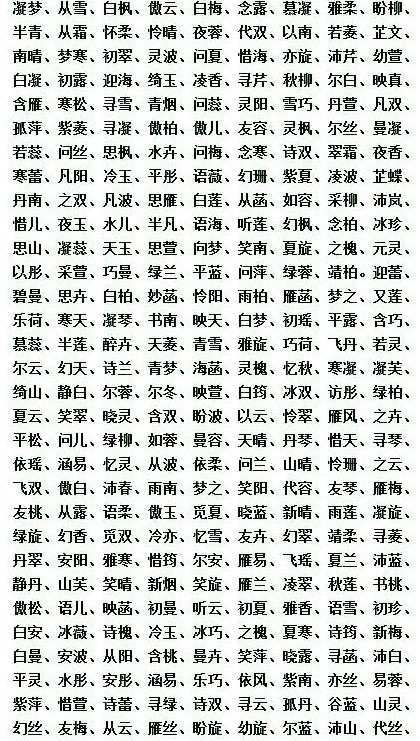 凝梦、从雪、白枫、傲云、白梅、念露、慕凝、雅柔、盼柳、
半青、从霜、怀柔、怜晴、夜蓉、代双、以南、若菱、芷文、
南晴、梦寒、初翠、灵波、问夏、惜海、亦旋、沛芹、幼萱、
白凝、初露、迎海、绮玉、凌香、寻芹、秋柳、尔白、映真、
含雁、寒松、寻雪、青烟、问蕊、灵阳、雪巧、丹萱、凡双、
孤萍、紫菱、寻凝、傲柏、傲儿、友容、灵枫、尔丝、曼凝、
若蕊、问丝、思枫、水卉、问梅、念寒、诗双、翠霜、夜香、
寒蕾、凡阳、冷玉、平彤、语薇、幻珊、紫夏、凌波、芷蝶、
丹南、之双、凡波、思雁、白莲、从菡、如容、采柳、沛岚、
惜儿、夜玉、水儿、半凡、语海、听莲、幻枫、念柏、冰珍、
思山、凝蕊、天玉、思萱、向梦、笑南、夏旋、之槐、元灵、
以彤、采萱、巧曼、绿兰、平蓝、问萍、绿蓉、靖柏。迎蕾、
碧曼、思卉、白柏、妙菡、怜阳、雨柏、雁菡、梦之、又莲、
乐荷、寒天、凝琴、书南、映天、白梦、初瑶、平露、含巧、
慕蕊、半莲、醉卉、天菱、青雪、雅旋、巧荷、飞丹、若灵、
尔云、幻天、诗兰、青梦、海菡、灵槐、忆秋、寒凝、凝芙、
绮山、静白、尔蓉、尔冬、映萱、白筠、冰双、访彤、绿柏、
夏云、笑翠、晓灵、含双、盼波、以云、怜翠、雁风、之卉、
平松、问儿、绿柳、如蓉、曼容、天晴、丹琴、惜天、寻琴、
依瑶、涵易、忆灵、从波、依柔、问兰、山晴、怜珊、之云、
飞双、傲白、沛春、雨南、梦之、笑阳、代容、友琴、雁梅、
友桃、从露、语柔、傲玉、觅夏、晓蓝、新晴、雨莲、凝旋、
绿旋、幻香、觅双、冷亦、忆雪、友卉、幻翠、靖柔、寻菱、
丹翠、安阳、雅寒、惜筠、尔安、雁易、飞瑶、夏兰、沛蓝、
静丹、山芙、笑晴、新烟、笑旋、雁兰、凌翠、秋莲、书桃、
傲松、语儿、映菡、初曼、听云、初夏、雅香、语雪、初珍、
白安、冰薇、诗槐、冷玉、冰巧、之槐、夏寒、诗筠、新梅、
白曼、安波、从阳、含桃、曼卉、笑萍、晓露、寻菡、沛白、
平灵、水彤、安彤、涵易、乐巧、依风、紫南、亦丝、易蓉、
紫萍、惜萱、诗蕾、寻绿、诗双、寻云、孤丹、谷蓝、山灵、
幻丝、友梅、从云、雁丝、盼旋、幼旋、尔蓝、沛山、代丝、